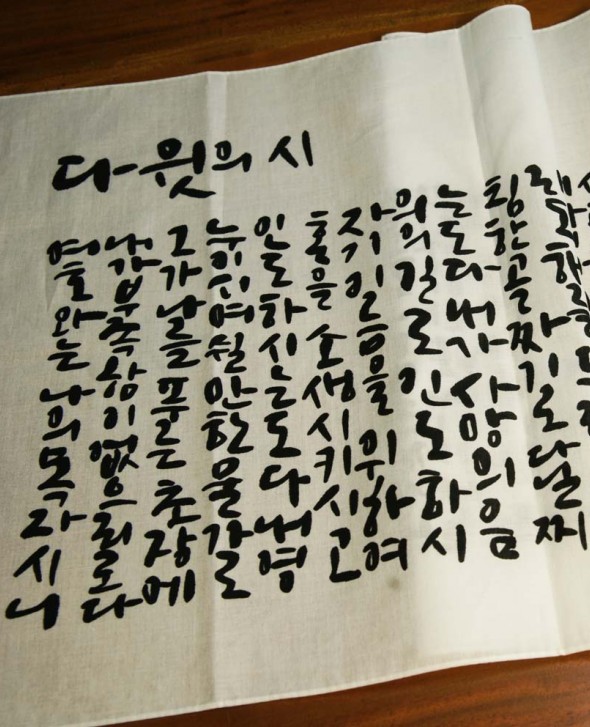 다윗의 시
여호와는 나의 목자시니
내가 부족함이 없으리로다
그가 나를 푸른 초장에
누이시며 쉴만한 물가로
인도하시는도다 내 영
혼을 소생시키시고
자기 이름을 위하여
의의 길로 인도하시
는도다 내가 사망의 음
침한 골짜기로 다닐찌